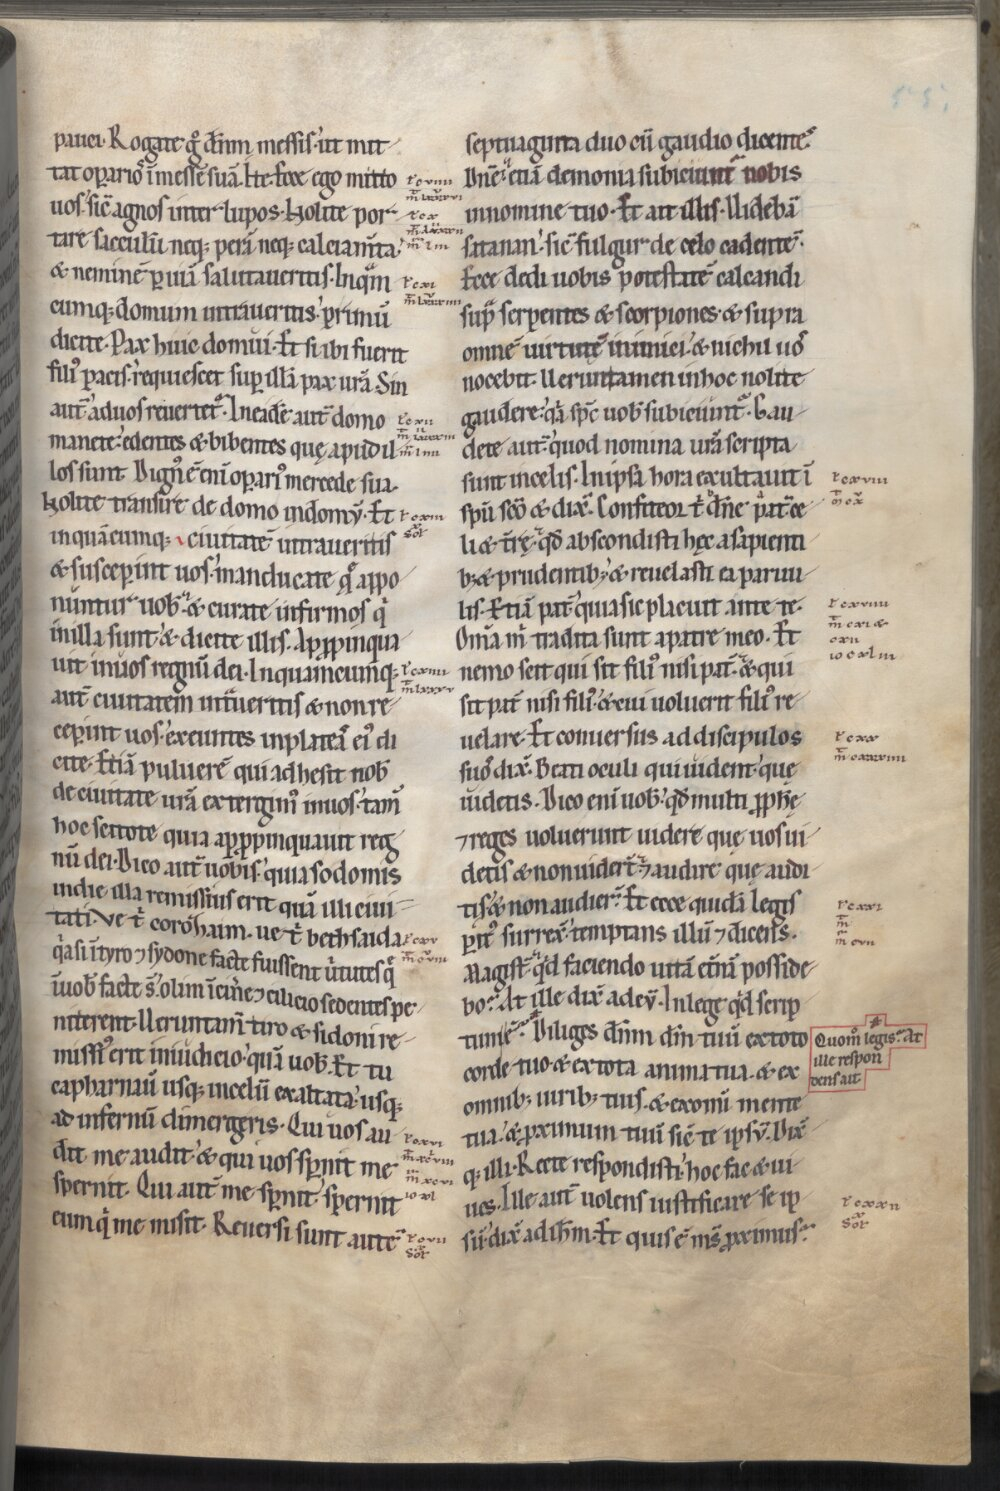 pauci. Rogate g̊ dñm messis ut mit
tat oꝑarios ī messē suā. Ite. Ecce ego mitto
uos sic̄ agnos inter lupos. Nolite por
tare sacculū neq; perā neq; calciam̄ta
& neminē ꝑ uiā salutaueritis. In quā
cumq; domum intraueritis primū
dicite. Pax huic domui. Et si ibi fuerit
fili᷒ pacis requiescet suꝑ illā pax ur̄a. Sin
aut̄ ad uos reuertet᷑. In eadē aut̄ domo
manete edentes & bibentes quę apud il
los sunt. Dign᷒ ē enī oꝑari᷒ mercede sua.
Nolite transire de domo in domū. Et
in quācumq; ciuitatē intraueritis
& susceperint uos manducate q̄ appo
nūntur uob̄ & curate infirmos q̄
in illa sunt & dicite illis. Apꝓpinqua
uit in uos regnū dei. In quamcumq;
aut̄ ciuitatem intraueritis & non re
ceperint uos exeuntes in plateā ei᷒ di
cite. Etiā puluerē qui adhesit nob̄
de ciuitate ur̄a extergim᷒ in uos. tam̄
hoc scitote quia appropinquauit reg
nū dei. Dico aut̄ uobis quia sodomis
in die illa remissius erit quā illi ciui
tati. Ve t̄ corozaim. ue t̄ bethsaida
q̄a si ī tyro ⁊ sydone facte fuissent uirtutes q̄
ī uob̄ facte s̄ olim ī cin̄e ⁊ cilicio sedentes pe
niterent. Ueruntam̄ tiro & sidoni re
missi᷒ erit in iudicio quā uob̄. Et tu
capharnaū usq; in celū exaltata usq;
ad infernū dimergeris. Qui uos au
dit me audit & qui uos sꝑnit me
spernit. Qui aut̄ me sꝑnit spernit
eum q̄ me misit. Reuersi sunt aute᷑
septuaginta duo cū gaudio dicentes
Dn̄e etiā demonia subiciunt᷑ nobis
in nomine tuo. Et ait illis. Uidebā
satanan sic̄ fulgur de celo cadentē.
Ecce dedi uobis potestatē calcandi
supra serpentes & scorpiones & supra
omnē uirtutē inimici & nichil uos
nocebit. Ueruntamen in hoc nolite
gaudere q̄a spc̄ uob̄ subiciunt᷑. Gau
dete aut̄ quod nomina ur̄a scripta
sunt in celis. In ipsa hora exultauit ī
spū sc̄o & dix̄. Confiteor t̄ dn̄e pat̄ ce
li & tr̄ę qd̄ abscondisti hęc a sapienti
b; & prudentib; & reuelasti ea paruu
lis. Etiā pat̄ quia sic placuit ante te.
Om̄a m̄ tradita sunt a patre meo. Et
nemo scit qui sit fili᷒ nisi pat̄ & qui
sit pat̄ nisi fili᷒ & cui uoluerit fili᷒ re
uelare. Et conuersus ad discipulos
suos dix̄. Beati oculi qui uident que
uidetis. Dico enī uob̄ qd̄ multi ꝓphę
⁊ reges uoluerunt uidere quę uos ui
detis & non uider̄t ⁊ audire quę audi
tis & non audier̄. Et ecce quidā legis
ꝑit᷒ surrex̄ temptans illū ⁊ dicens.
Magist̄ qd̄ faciendo uitā etn̄ā posside
bo. At ille dix̄ ad eū. In lege qd̄ scrip
tum ē. Diliges dn̄m dm̄ tuū ex toto
corde tuo & ex tota anima tua & ex
omnib; uirib; tuis & ex omi mente
tua & ꝓximum tuū sic̄ te ipsū. Dix̄
q; illi. Recte respondisti hoc fac & ui
ues. Ille aut̄ uolens iustificare se ip
sū dix̄ ad ih̄m. Et quis ē m̄s proximus
Quom̄ legis. At
ille respon
dens ait